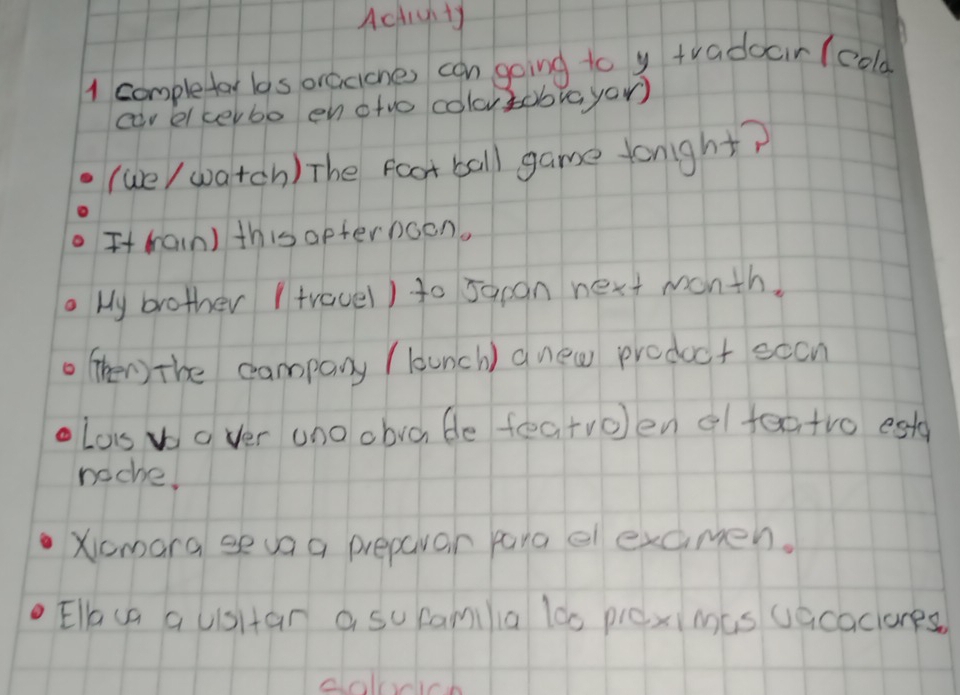 Activity
1 completar las oraciones con going to y traducir (colo
car el verbo en otro color subrayar)
• (we/watch) The foot ball game tonight?
•
• It (rain) this afternoon.
• My brother (travel) to Japan next month.
• (Then) The company (launch) a new product soon
• Luis va a ver una obra (de teatro) en el teatro esta
noche.
• Xiomara se va a preparar para el examen.
• Ella va a visitar a su familia las proximas vacaciones.